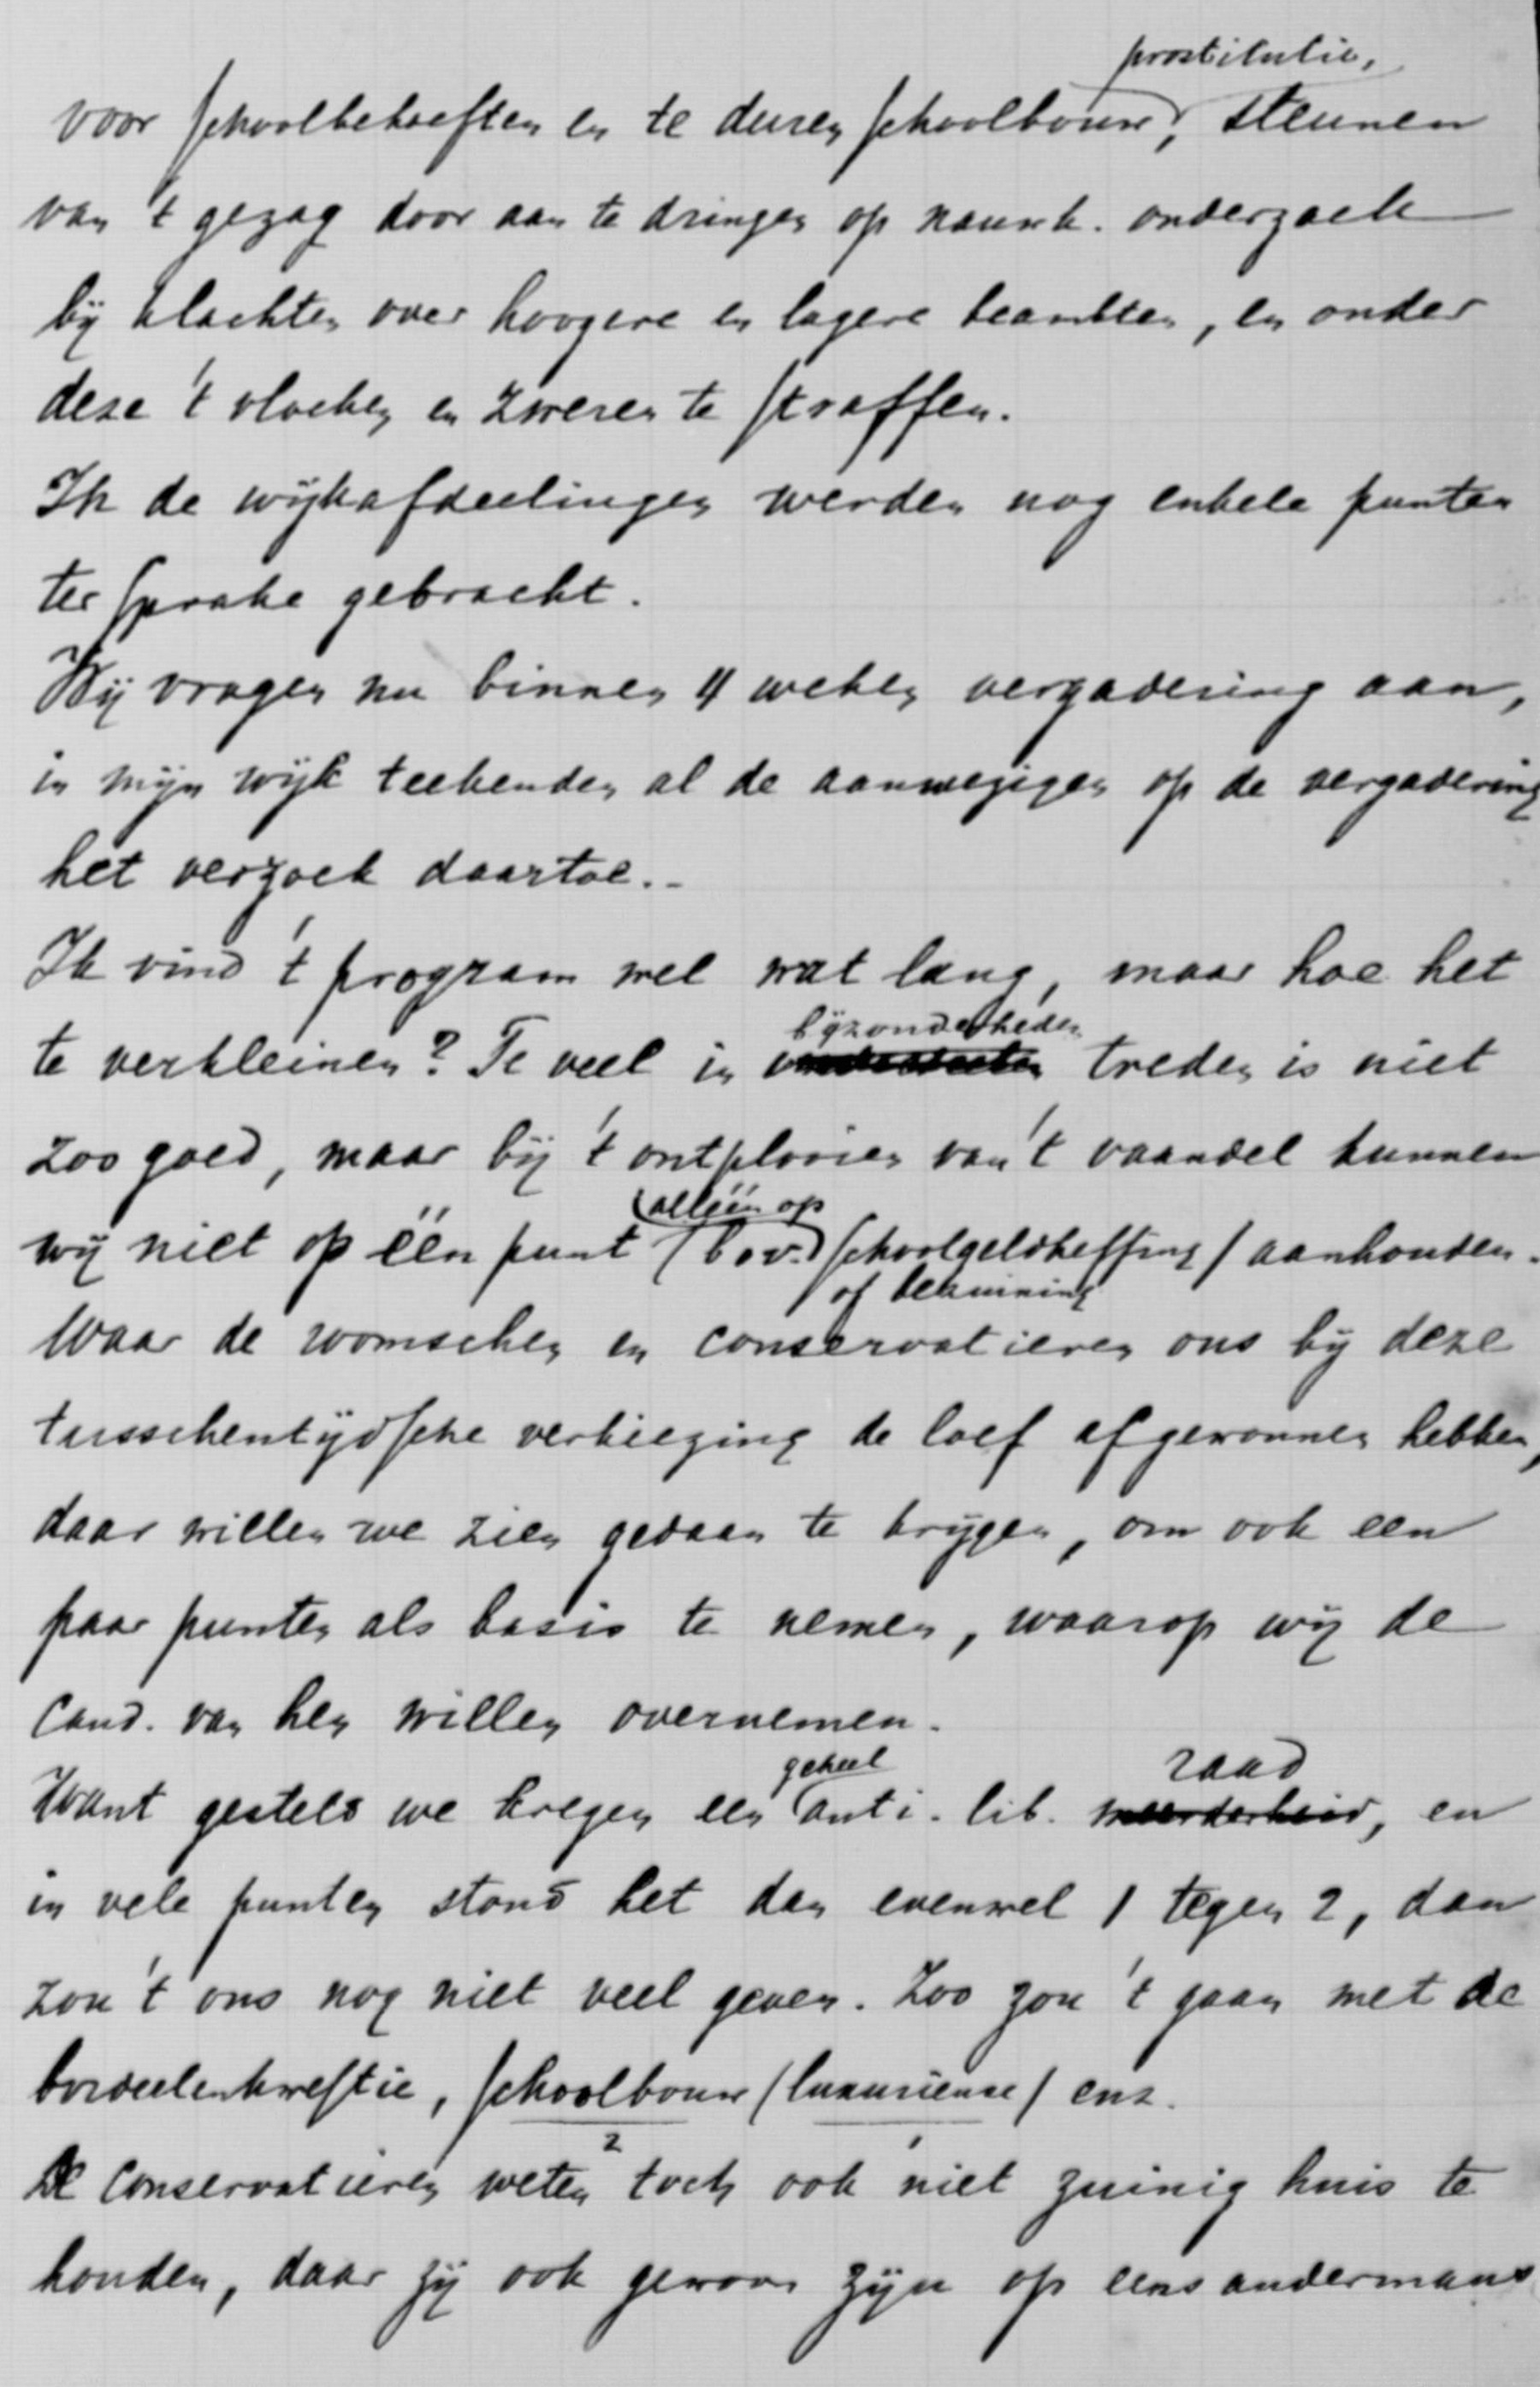 prostitutie,
voor schoolbehoeften en te duren schoolbouw, steunen
van 't gezag door aan te dringen op nauwk. onderzoek
bij klachten over hoogere en lagere beambten, en onder
deze 't vloeken en zweren te straffen.
In de wijkafdeelingen werden nog enkele punten
ter sprake gebracht.
Wij vragen nu binnen 4 weken vergadering aan,
in mijn wijk teekenden al de aanwezigen op de vergadering
het verzoek daartoe.-
Ik vind 't program wel wat lang, maar hoe het
bijzonderheden
te verkleinen? Te veel in treden is niet
zoo goed, maar bij 't ontplooien van 't vaandel kunnen
alléén op
wij niet op één punt (bov. schoolgeldheffing) aanhouden.
of
Waar de roomschen en conservatieven ons bij deze
tusschentijdsche verkiezing de loef afgewonnen hebben,
daar willen we zien gedaan te krijgen, om ook een
paar punten als basis te nemen, waarop wij de
cand. van hen willen overnemen.
geheel raad
Want gesteld we kregen een anti-lib. meerderheid, en
in vele punten stond het dan evenwel 1 tegen 2, dan
zou 't ons nog niet veel geven. Zoo zou 't gaan met de
bordeelenkwestie, schoolbouw (luxurieuse) enz.
2 1
De conservatieven weten toch ook niet zuinig huis te
houden, daar zij ook gewoon zijn op eens andermans